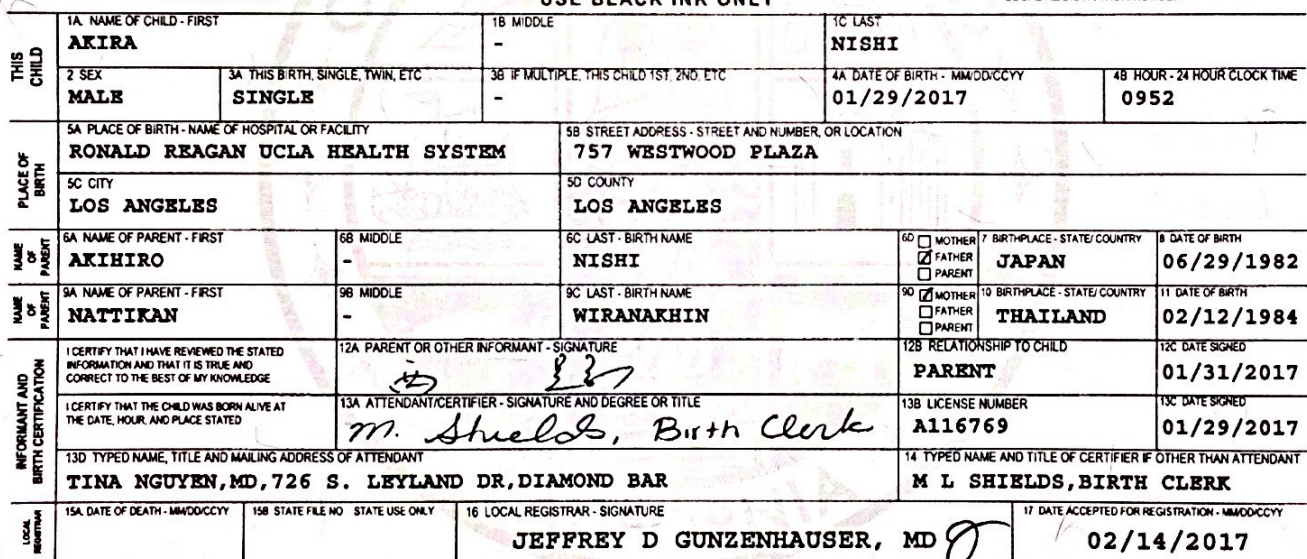 USE BLACK INK ONLY
THIS CHILD
1A. NAME OF CHILD - FIRST
AKIRA
1B MIDDLE
-
1C LAST
NISHI
2 SEX
MALE
3A THIS BIRTH, SINGLE, TWIN, ETC
SINGLE
3B IF MULTIPLE, THIS CHILD 1ST, 2ND, ETC
-
4A DATE OF BIRTH - MM/DD/CCYY
01/29/2017
4B HOUR - 24 HOUR CLOCK TIME
0952
PLACE OF BIRTH
5A PLACE OF BIRTH - NAME OF HOSPITAL OR FACILITY
RONALD REAGAN UCLA HEALTH SYSTEM
5B STREET ADDRESS - STREET AND NUMBER, OR LOCATION
757 WESTWOOD PLAZA
5C CITY
LOS ANGELES
5D COUNTY
LOS ANGELES
NAME OF PARENT
6A NAME OF PARENT - FIRST
AKIHIRO
6B MIDDLE
-
6C LAST - BIRTH NAME
NISHI
6D MOTHER
FATHER
PARENT
7 BIRTHPLACE - STATE/COUNTRY
JAPAN
8 DATE OF BIRTH
06/29/1982
NAME OF PARENT
9A NAME OF PARENT - FIRST
NATTIKAN
9B MIDDLE
-
9C LAST - BIRTH NAME
WIRANAKHIN
9D MOTHER
FATHER
PARENT
10 BIRTHPLACE - STATE/COUNTRY
THAILAND
11 DATE OF BIRTH
02/12/1984
INFORMANT AND BIRTH CERTIFICATION
I CERTIFY THAT I HAVE REVIEWED THE STATED
INFORMATION AND THAT IT IS TRUE AND
CORRECT TO THE BEST OF MY KNOWLEDGE
12A PARENT OR OTHER INFORMANT - SIGNATURE
12B RELATIONSHIP TO CHILD
PARENT
12C DATE SIGNED
01/31/2017
I CERTIFY THAT THE CHILD WAS BORN ALIVE AT
THE DATE, HOUR, AND PLACE STATED
13A ATTENDANT/CERTIFIER - SIGNATURE AND DEGREE OR TITLE
M. Shields, Birth Clerk
13B LICENSE NUMBER
A116769
13C DATE SIGNED
01/29/2017
13D TYPED NAME, TITLE AND MAILING ADDRESS OF ATTENDANT
TINA NGUYEN,MD,726 S. LEYLAND DR,DIAMOND BAR
14 TYPED NAME AND TITLE OF CERTIFIER IF OTHER THAN ATTENDANT
M L SHIELDS,BIRTH CLERK
LOCAL REGISTRAR
15A. DATE OF DEATH - MM/DD/CCYY
15B STATE FILE NO STATE USE ONLY
16 LOCAL REGISTRAR - SIGNATURE
JEFFREY D GUNZENHAUSER, MD
17 DATE ACCEPTED FOR REGISTRATION - MM/DD/CCYY
02/14/2017